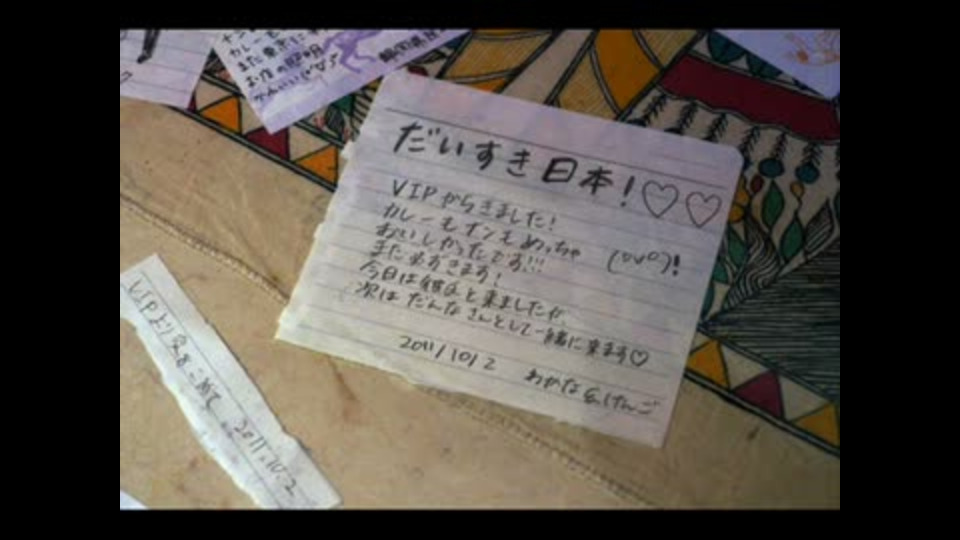 カレーも
また東京に
お店の
かわいい
だいすき日本!♡♡
VIPからきました!
カレーもナンもめっちゃ
おいしかったです!!! (°v°)!
また必ずきます!
今日は彼氏と来ましたが、
次はだんなさんとして一緒に来ます♡
2011/10/2 わかな&けんご
VIPより
2011.10.2